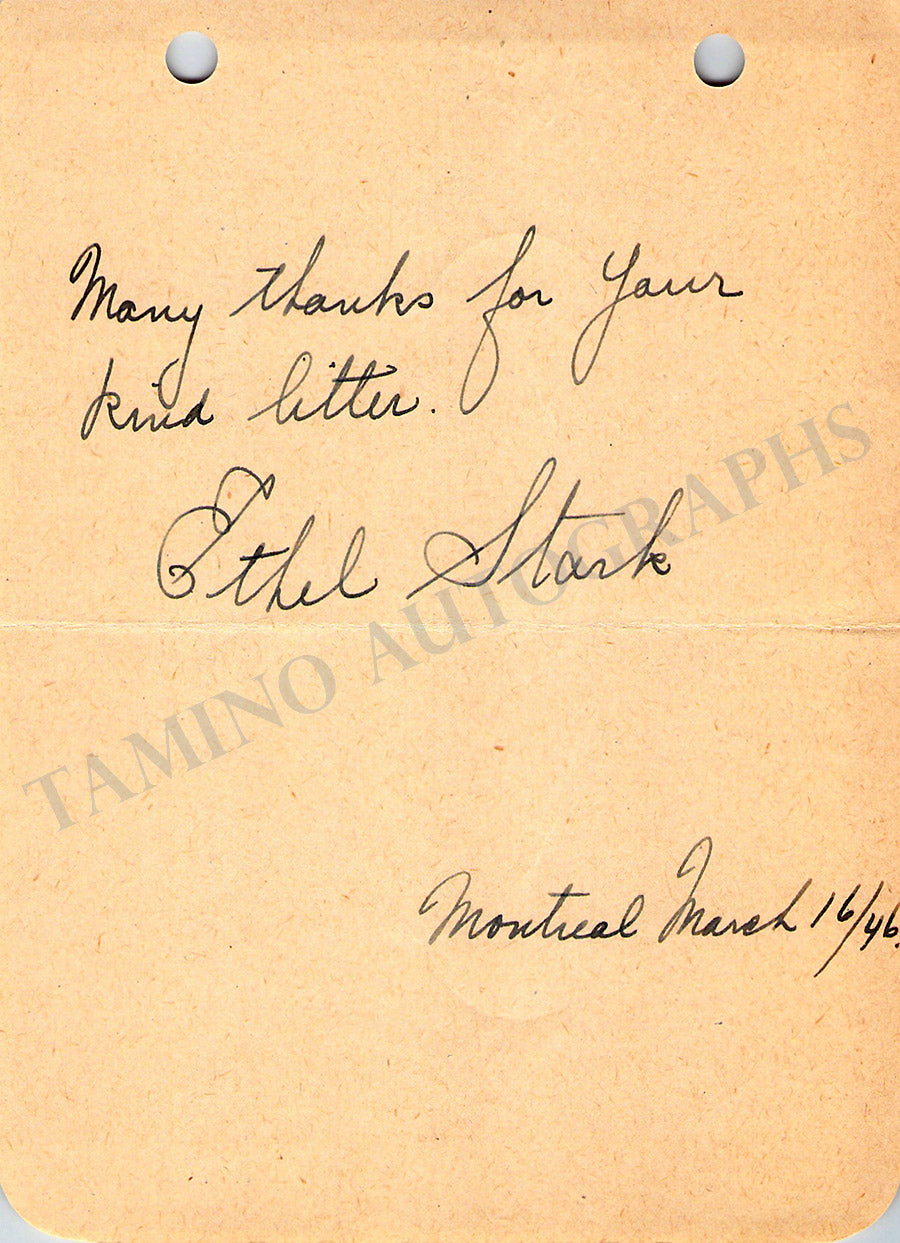 Many thanks for your
kind letter.
Ethel Stark
TAMINO AUTOGRAPHS
Montreal March 16/46.